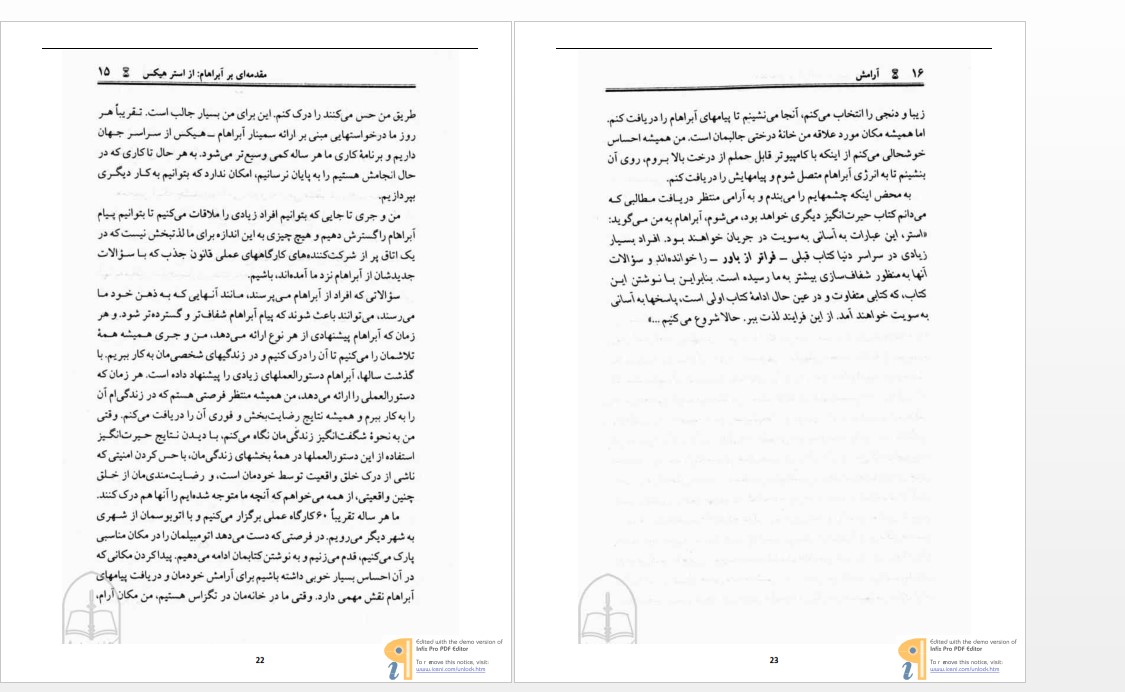 مقدمه‌ای بر آبراهام: از استر هیکس ۱۵
طریق من حس می‌کنند را درک کنم. این برای من بسیار جالب است. تقریباً هر
روز ما درخواستهایی مبنی بر ارائه سمینار آبراهام ــ هیکس از سراسر جهان
داریم و برنامهٔ کاری ما هر ساله کمی وسیع‌تر می‌شود. به هر حال تا کاری که در
حال انجامش هستیم را به پایان نرسانیم، امکان ندارد که بتوانیم به کار دیگری
بپردازیم.
من و جری تا جایی که بتوانیم افراد زیادی را ملاقات می‌کنیم تا بتوانیم پیام
آبراهام را گسترش دهیم و هیچ چیزی به این اندازه برای ما لذتبخش نیست که در
یک اتاق پر از شرکت‌کننده‌های کارگاههای عملی قانون جذب که با سؤالات
جدیدشان از آبراهام نزد ما آمده‌اند، باشیم.
سؤالاتی که افراد از آبراهام می‌پرسند، مانند آنهایی که به ذهن خود ما
می‌رسند، می‌توانند باعث شوند که پیام آبراهام شفاف‌تر و گسترده‌تر شود. و هر
زمان که آبراهام پیشنهادی از هر نوع ارائه می‌دهد، من و جری همیشه همهٔ
تلاشمان را می‌کنیم تا آن را درک کنیم و در زندگیهای شخصی‌مان به کار ببریم. با
گذشت سالها، آبراهام دستورالعملهای زیادی را پیشنهاد داده است. هر زمان که
دستورالعملی را ارائه می‌دهد، من همیشه منتظر فرصتی هستم که در زندگی‌ام آن
را به کار ببرم و همیشه نتایج رضایت‌بخش و فوری آن را دریافت می‌کنم. وقتی
من به نحوهٔ شگفت‌انگیز زندگی‌مان نگاه می‌کنم، با دیدن نتایج حیرت‌انگیز
استفاده از این دستورالعملها در همهٔ بخشهای زندگی‌مان، با حس کردن امنیتی که
ناشی از درک خلق واقعیت توسط خودمان است، و رضایت‌مندی‌مان از خلق
چنین واقعیتی، از همه می‌خواهم که آنچه ما متوجه شده‌ایم را آنها هم درک کنند.
ما هر ساله تقریباً ۶۰ کارگاه عملی برگزار می‌کنیم و با اتوبوسمان از شهری
به شهر دیگر می‌رویم. در فرصتی که دست می‌دهد اتومبیلمان را در مکان مناسبی
پارک می‌کنیم، قدم می‌زنیم و به نوشتن کتابمان ادامه می‌دهیم. پیدا کردن مکانی که
در آن احساس بسیار خوبی داشته باشیم برای آرامش خودمان و دریافت پیامهای
آبراهام نقش مهمی دارد. وقتی ما در خانه‌مان در تگزاس هستیم، من مکان آرام،
22
Edited with the demo version of
Infix Pro PDF Editor
To remove this notice, visit:
www.iceni.com/unlock.htm
۱۶ آرامش
زیبا و دنجی را انتخاب می‌کنم، آنجا می‌نشینم تا پیامهای آبراهام را دریافت کنم.
اما همیشه مکان مورد علاقه من خانهٔ درختی جالبمان است. من همیشه احساس
خوشحالی می‌کنم از اینکه با کامپیوتر قابل حملم از درخت بالا بروم، روی آن
بنشینم تا به انرژی آبراهام متصل شوم و پیامهایش را دریافت کنم.
به محض اینکه چشمهایم را می‌بندم و به آرامی منتظر دریافت مطالبی که
می‌دانم کتاب حیرت‌انگیز دیگری خواهد بود، می‌شوم، آبراهام به من می‌گوید:
«استر، این عبارات به آسانی به سویت در جریان خواهند بود. افراد بسیار
زیادی در سراسر دنیا کتاب قبلی ــ فراتر از باور ــ را خوانده‌اند و سؤالات
آنها به منظور شفاف‌سازی بیشتر به ما رسیده است. بنابراین با نوشتن این
کتاب، که کتابی متفاوت و در عین حال ادامهٔ کتاب اولی است، پاسخها به آسانی
به سویت خواهند آمد. از این فرایند لذت ببر. حالا شروع می‌کنیم ...»
23
Edited with the demo version of
Infix Pro PDF Editor
To remove this notice, visit:
www.iceni.com/unlock.htm